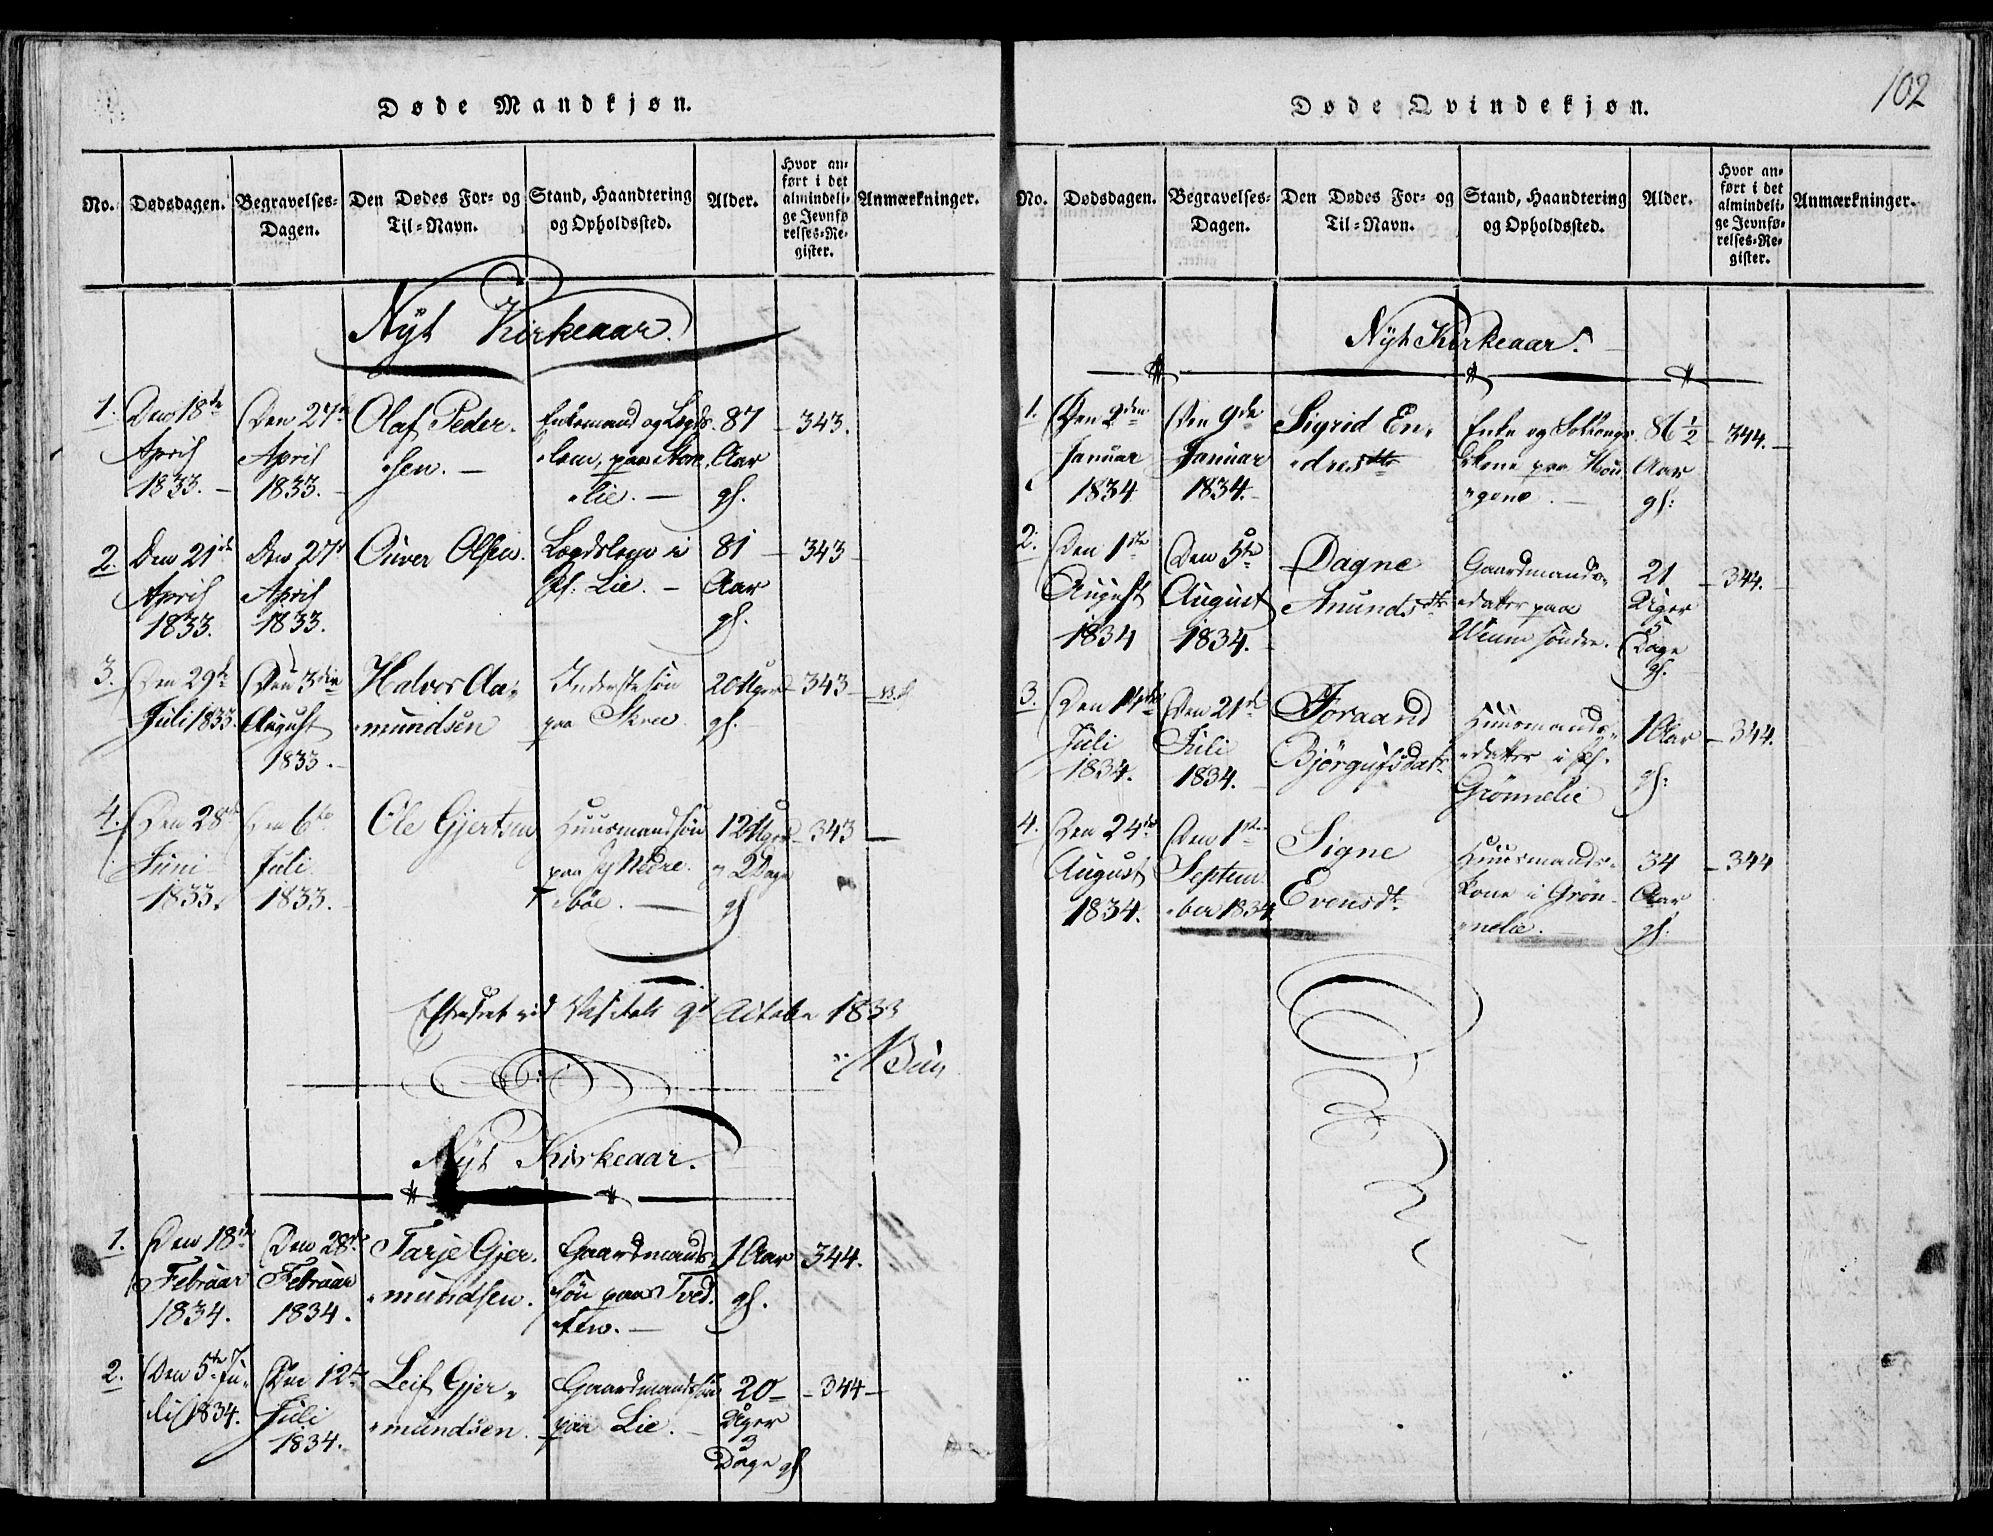 Døde Mandkjøn.
No.
Dødsdagen.
Begravelses-
Dagen.
Den Dødes For- og
Til-Navn.
Stand, Haandtering
og Opholdssted.
Alder.
Hvor an-
ført i det
almindeli-
ge Jevnfø-
relses-Re-
gister.
Anmærkninger.
Nyt Kirkeaar.
1.
Den 18de
April
1833.
Den 27de
April
1833.
Olaf Peder-
sen.
Enkemand og Lægds-
lem, paa
lie.
87
Aar
gl.
343.
2.
Den 21de
April
1833.
Den 27de
April
1833.
Olsen.
Lægdslem i
Lie.
81
Aar
gl.
343
3.
Den 29de
Juli 1833.
Den 3die
August
1833.
Halvor Aa-
mundsøn
Inderstesøn
paa Skree.
20 Uger
gl.
343
4.
Den 28de
Juni
1833.
Den 6te
Juli
1833.
Ole Gjertsen
Huusmandsøn
paa Nedre-
bøe.
12 Uger
2 Dage
gl.
343
Efterseet ved Visitats 9de 1833
Nyt Kirkeaar.
1.
Den 18de
Februar
1834.
Den 28de
Februar
1834.
Tarje Gjer-
mundsen.
Gaardmands-
søn paa Tved-
ten.
1 Aar
gl.
344.
2.
Den 5te Ju-
li 1834.
Den 12te
Juli
1834.
Leif Gjer-
mundsen.
Gaardmandssøn
paa Lie.
20
Uger
3
Dage gl.
344
102
Døde Qvindekjøn.
No.
Dødsdagen.
Begravelses-
Dagen.
Den Dødes For- og
Til-Navn.
Stand, Haandtering
og Opholdssted.
Alder.
Hvor an-
ført i det
almindeli-
ge Jevnfø-
relses-Re-
gister.
Anmærkninger.
Nyt Kirkeaar.
1.
Den 2den
Januar
1834
Den 9de
Januar
1834.
Sigrid En-
dresdtr
Enke og
kone paa
gene.
86 1/2
Aar
gl:
344.
2.
Den 1ste
August
1834
Den 5te
August
1834.
Dagne
Anundsdtr
Gaardmands-
datter paa
Vinne søndre.
21
Uger
5
Dage
gl.
344.
3.
Den 14de
Juli
1834.
Den 21de
Juli
1834.
Toraand
Bjørgufsdatr
Huusmands-
datter i
Grønnelie
1 Aar
gl:
344.
4.
Den 24de
August
1834.
Den 1ste
Septem-
ber 1834
Signe
Evensdtr
Huusmands-
kone i Grøn-
nelie.
34
Aar
gl.
344